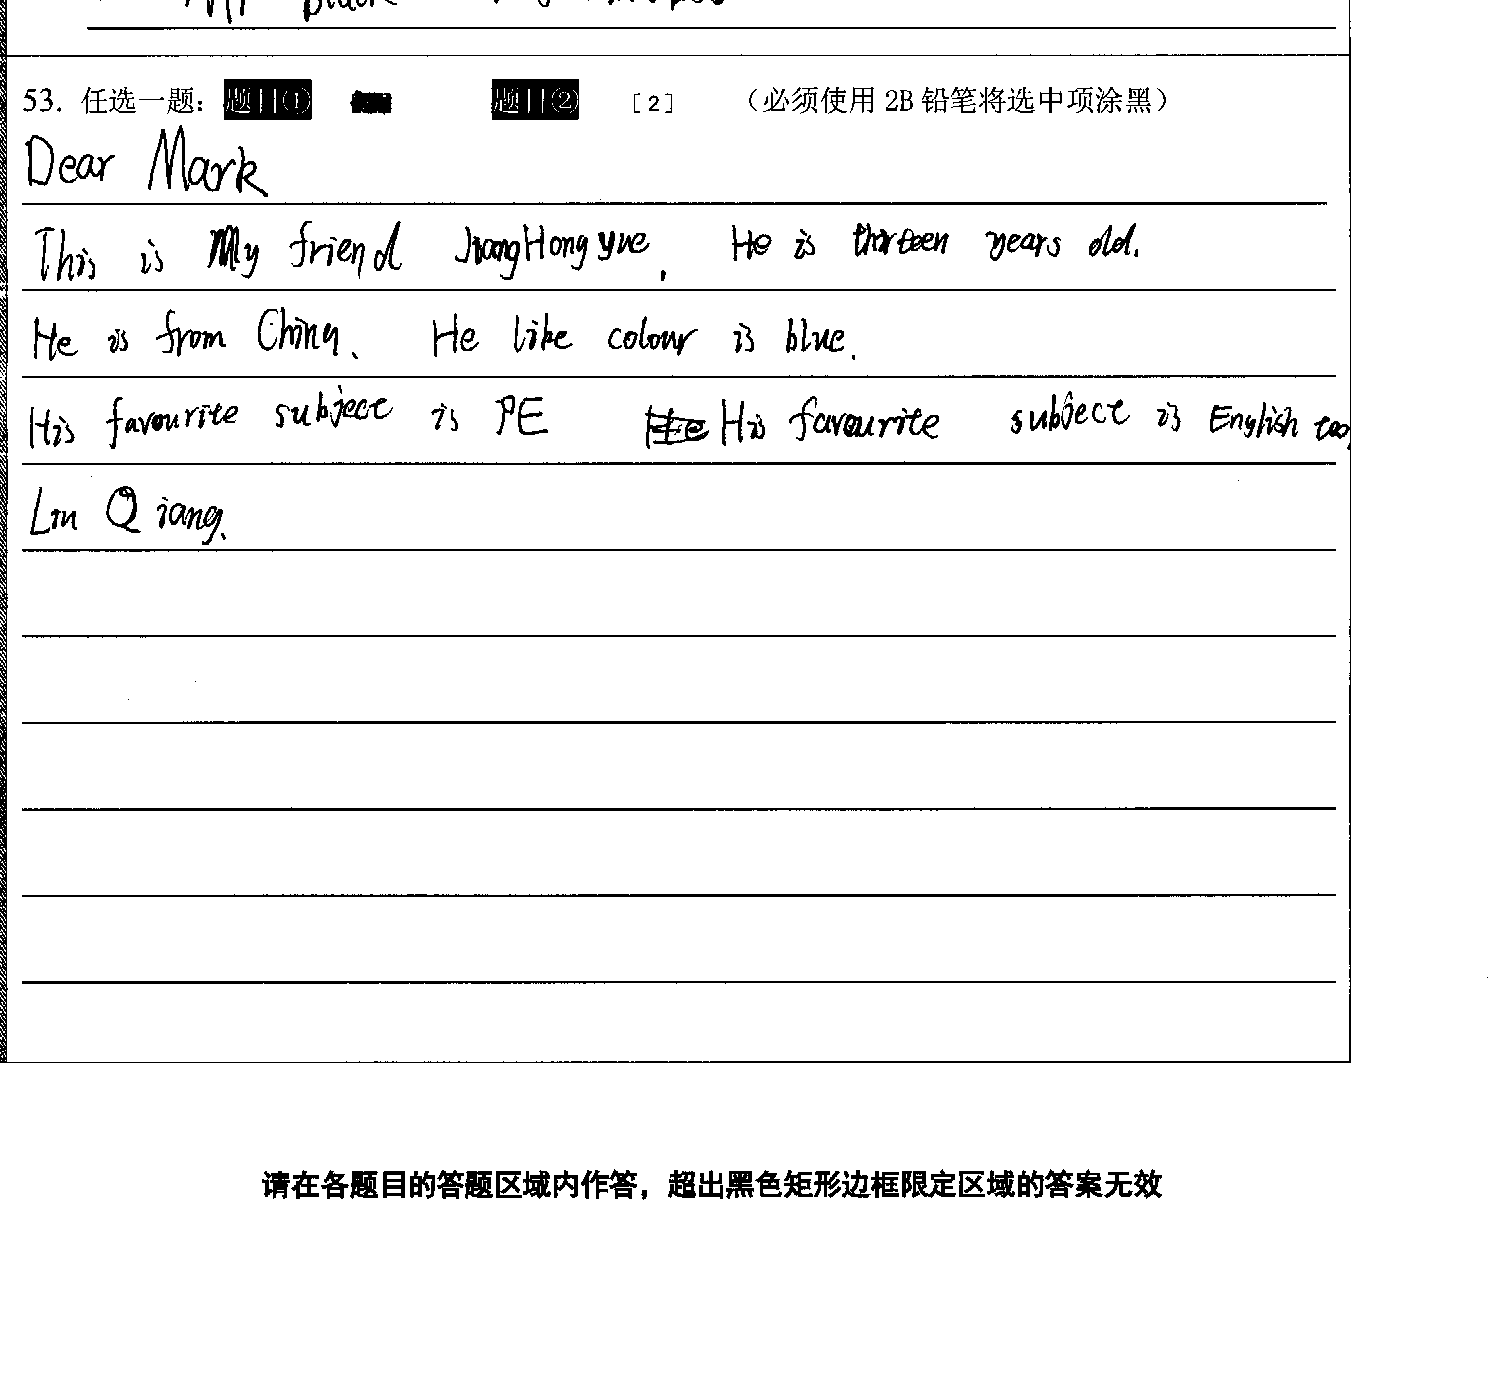 black
53. 任选一题: 题目① 题目② [2] (必须使用 2B 铅笔将选中项涂黑)
Dear Mark
This is My friend JiangHongyue. He is thirteen years old.
He is from China. He like colour is blue.
His favourite subject is PE His favourite subject is English too.
Lin Qiang.
请在各题目的答题区域内作答，超出黑色矩形边框限定区域的答案无效